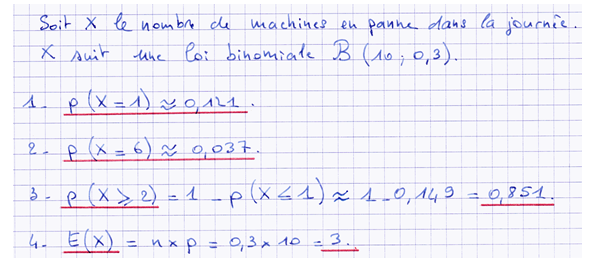 Soit X le nombre de machines en panne dans la journée.
X suit une loi binomiale B (10 ; 0,3).
1 - p (X = 1) ≈ 0,121.
2 - p (X = 6) ≈ 0,037.
3 - p (X ⩾ 2) = 1 - p (X ≤ 1) ≈ 1 - 0,149 = 0,851.
4 - E(X) = n × p = 0,3 × 10 = 3.